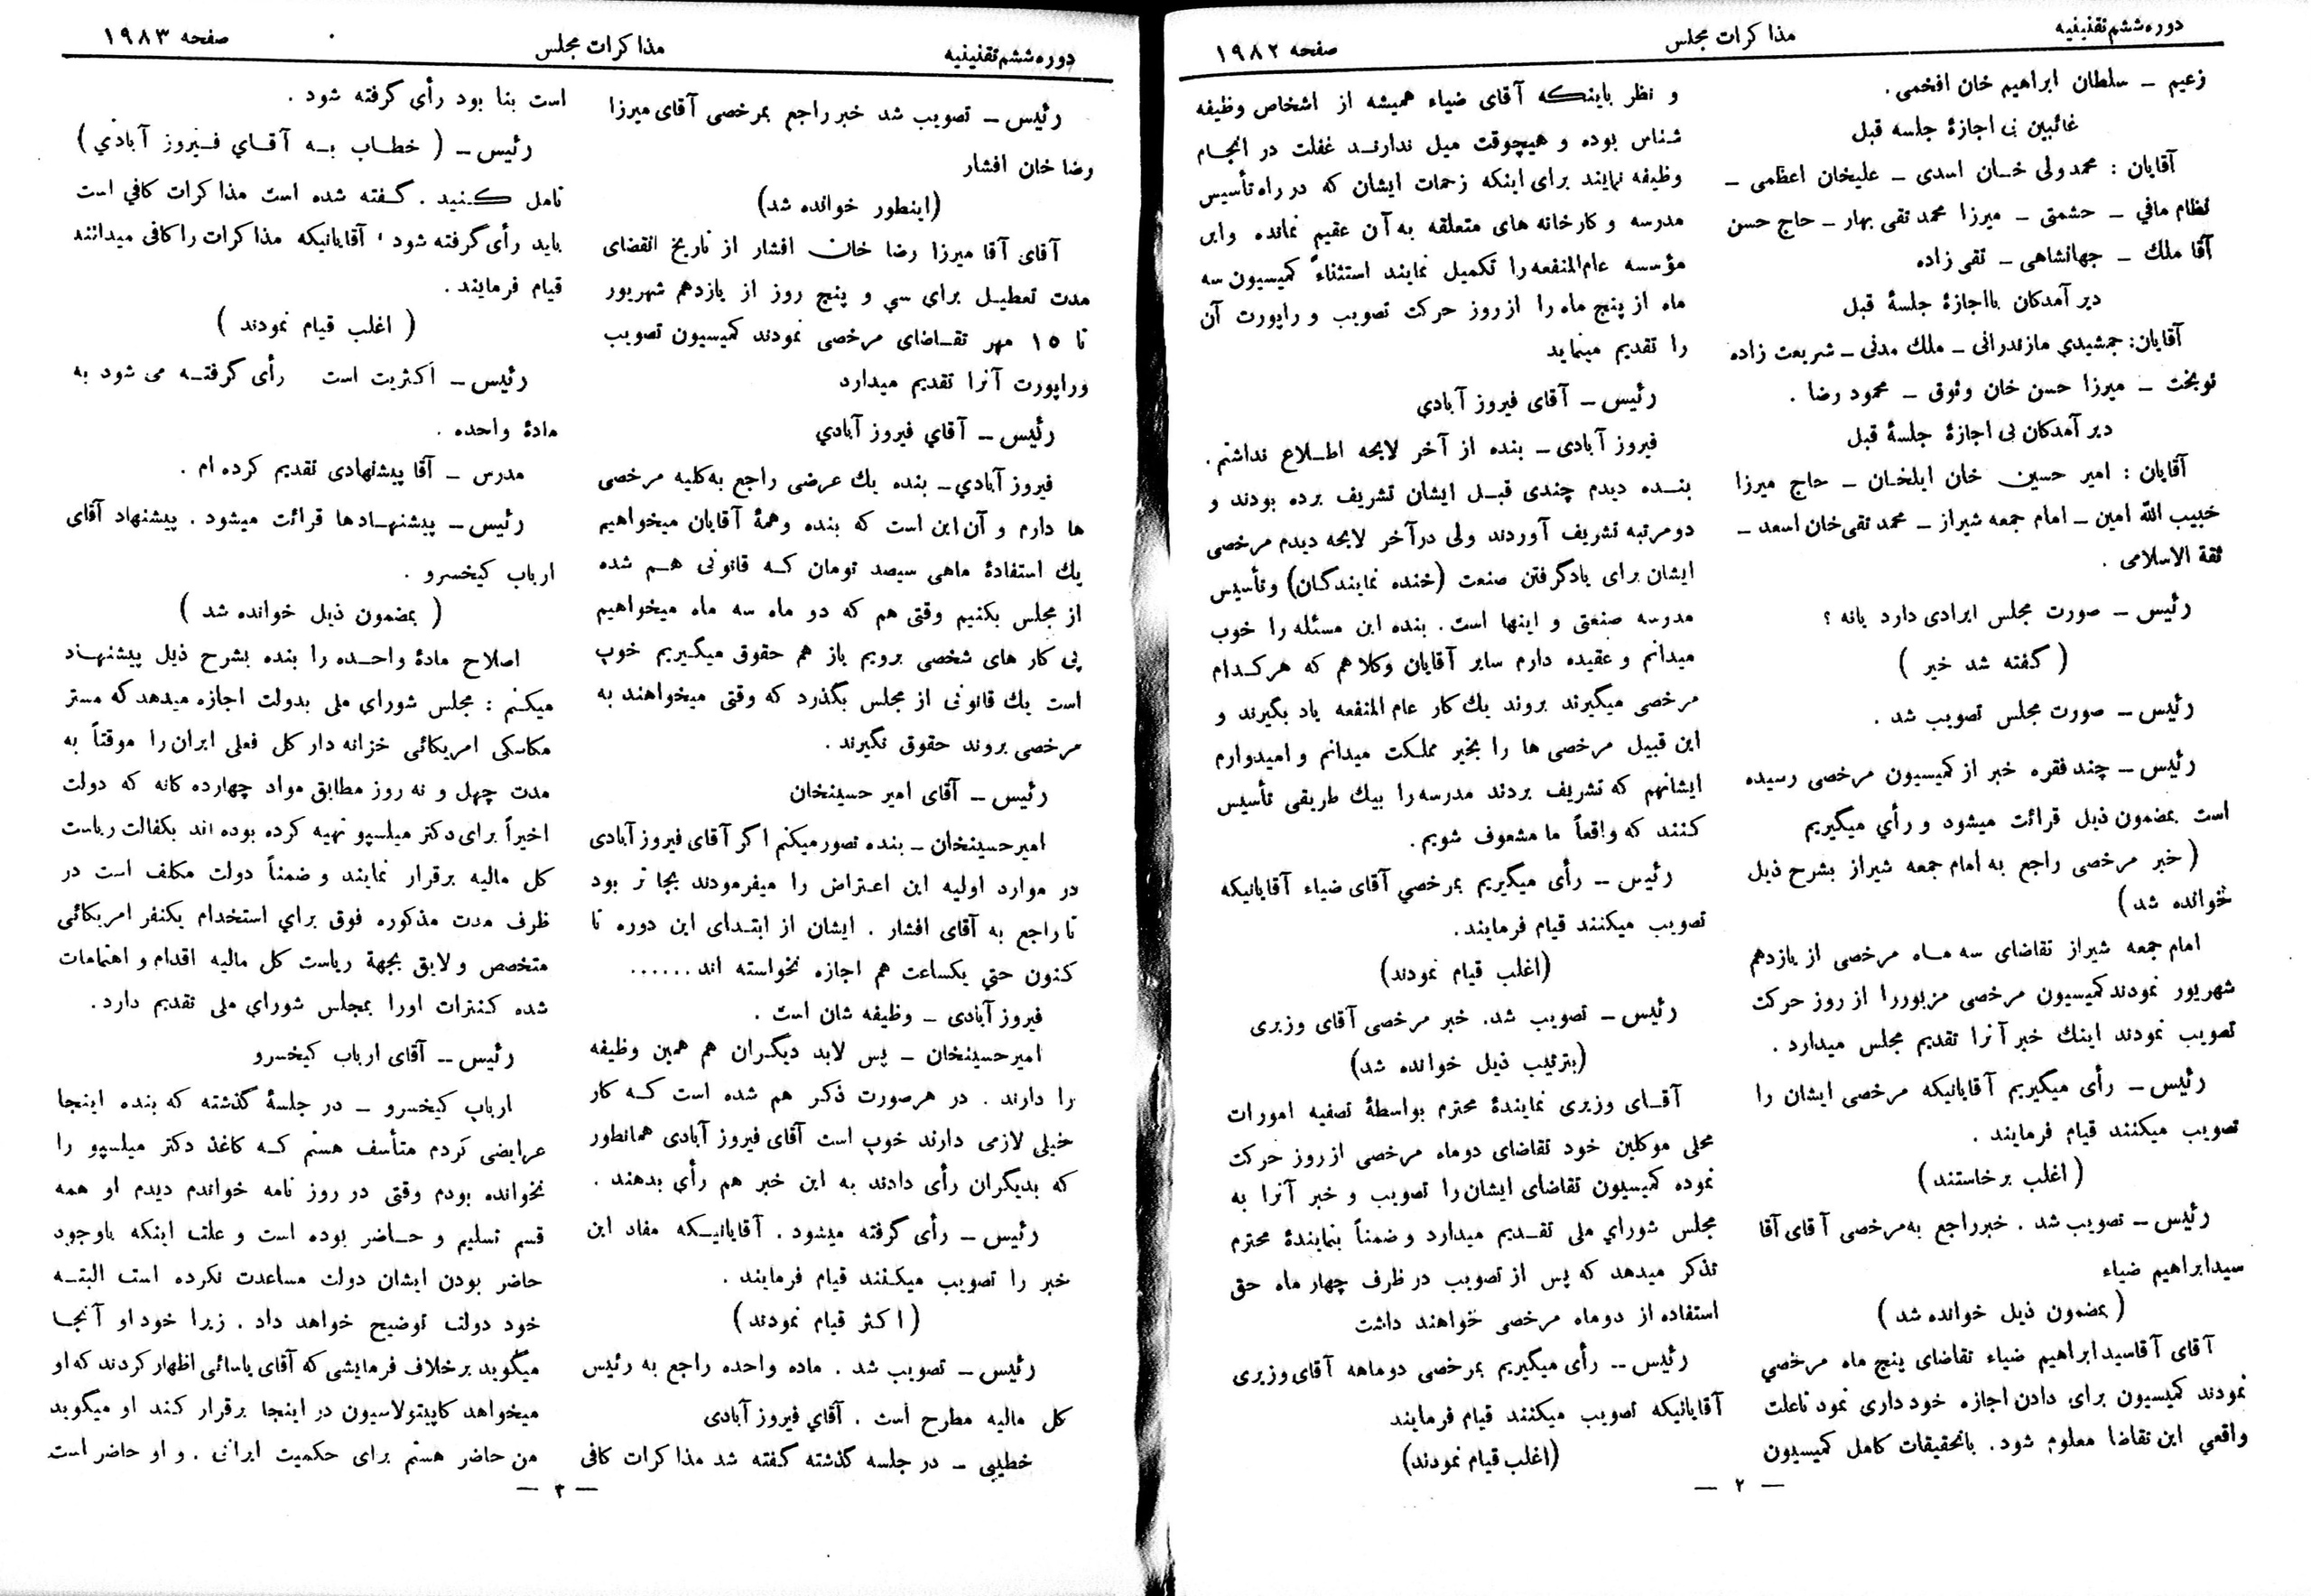 دوره ششم تقنینیه
مذاکرات مجلس
صفحه ۱۹۸۲
زعیم ـ سلطان ابراهیم خان افخمی.
غائبین بی اجازهٔ جلسه قبل
آقایان : محمد ولی خان اسدی ـ علیخان اعظمی ـ
نظام مافی ـ حشمتی ـ میرزا محمد تقی بهار ـ حاج حسن
آقا ملك ـ جهانشاهی ـ تقی زاده
دیر آمدکان بااجازهٔ جلسهٔ قبل
آقایان: جمشیدي مازندرانی ـ ملك مدنی ـ شریعت زاده
نوبخت ـ میرزا حسن خان وثوق ـ محمود رضا .
دیر آمدکان بی اجازهٔ جلسهٔ قبل
آقایان : امیر حسین خان ایلخان ـ حاج میرزا
حبیب الله امین ـ امام جمعه شیراز ـ محمد تقی خان اسعد ـ
ثقة الاسلامی .
رئیس ـ صورت مجلس ایرادی دارد یانه ؟
( گفته شد خیر )
رئیس ـ صورت مجلس تصویب شد .
رئیس ـ چند فقره خبر از کمیسیون مرخصی رسیده
است بمضمون ذیل قرائت میشود و رأي میگیریم
( خبر مرخصی راجع به امام جمعه شیراز بشرح ذیل
خوانده شد )
امام جمعه شیراز تقاضای سه ماه مرخصی از یازدهم
شهریور نمودند کمیسیون مرخصی مزبور را از روز حرکت
تصویب نمودند اینك خبر آنرا تقدیم مجلس میدارد .
رئیس ـ رأی میگیریم آقایانیکه مرخصی ایشان را
تصویب میکنند قیام فرمایند .
( اغلب برخاستند )
رئیس ـ تصویب شد . خبر راجع به مرخصی آقای آقا
سید ابراهیم ضیاء
( بمضمون ذیل خوانده شد )
آقای آقا سید ابراهیم ضیاء تقاضای پنج ماه مرخصي
نمودند کمیسیون برای دادن اجازه خود داری نمود تاعلت
واقعي این تقاضا معلوم شود. باتحقیقات کامل کمیسیون
و نظر باینکه آقای ضیاء همیشه از اشخاص وظیفه
شناس بوده و هیچوقت میل ندارند غفلت در انجام
وظیفه نمایند برای اینکه زحمات ایشان که در راه تأسیس
مدرسه و کارخانه های متعلقه به آن عقیم نمانده و این
مؤسسه عام‌المنفعه را تکمیل نمایند استثناءً کمیسیون سه
ماه از پنج ماه را از روز حرکت تصویب و راپورت آن
را تقدیم مینماید
رئیس ـ آقای فیروز آبادي
فیروز آبادی ـ بنده از آخر لایحه اطلاع نداشتم .
بنده دیدم چندی قبل ایشان تشریف برده بودند و
دو مرتبه تشریف آوردند ولی در آخر لایحه دیدم مرخصی
ایشان برای یادگرفتن صنعت (خنده نمایندگان) و تأسیس
مدرسه صنعتی و اینها است. بنده این مسئله را خوب
میدانم و عقیده دارم سایر آقایان وکلا هم که هرکدام
مرخصی میگیرند بروند یك کار عام المنفعه یاد بگیرند و
این قبیل مرخصی ها را بخیر مملکت میدانم و امیدوارم
ایشانهم که تشریف بردند مدرسه را بیك طریقی تأسیس
کنند که واقعاً ما مشعوف شویم.
رئیس ـ رأی میگیریم بمرخصي آقای ضیاء آقایانیکه
تصویب میکنند قیام فرمایند.
(اغلب قیام نمودند)
رئیس ـ تصویب شد. خبر مرخصی آقای وزیری
(بترتیب ذیل خوانده شد)
آقای وزیری نمایندهٔ محترم بواسطهٔ تصفیه امورات
محلی موکلین خود تقاضای دوماه مرخصی از روز حرکت
نموده کمیسیون تقاضای ایشان را تصویب و خبر آنرا به
مجلس شورای ملی تقدیم میدارد و ضمناً بنمایندهٔ محترم
تذکر میدهد که پس از تصویب در ظرف چهار ماه حق
استفاده از دو ماه مرخصی خواهند داشت
رئیس ـ رأی میگیریم بمرخصی دوماهه آقای وزیری
آقایانیکه تصویب میکنند قیام فرمایند
(اغلب قیام نمودند)
— ۲ —
دوره ششم تقنینیه
مذاکرات مجلس
صفحه ۱۹۸۳
رئیس ـ تصویب شد خبر راجع بمرخصی آقای میرزا
رضا خان افشار
(اینطور خوانده شد)
آقای آقا میرزا رضا خان افشار از تاریخ انقضای
مدت تعطیل برای سي و پنج روز از یازدهم شهریور
تا ۱۵ مهر تقاضای مرخصی نمودند کمیسیون تصویب
وراپورت آنرا تقدیم میدارد
رئیس ـ آقاي فیروز آبادي
فیروز آبادي ـ بنده یك عرضی راجع به کلیه مرخصی
ها دارم و آن این است که بنده و همهٔ آقایان میخواهیم
یك استفادهٔ ماهی سیصد تومان که قانونی هم شده
از مجلس بکنیم وقتی هم که دو ماه سه ماه میخواهیم
پی کار های شخصی برویم باز هم حقوق میگیریم خوب
است یك قانونی از مجلس بگذرد که وقتی میخواهند به
مرخصی بروند حقوق نگیرند .
رئیس ـ آقای امیر حسینخان
امیرحسینخان ـ بنده تصور میکنم اگر آقای فیروز آبادی
در موارد اولیه این اعتراض را میفرمودند بجا تر بود
تا راجع به آقای افشار . ایشان از ابتدای این دوره تا
کنون حتي یکساعت هم اجازه نخواسته اند......
فیروز آبادی ـ وظیفه شان است .
امیرحسینخان ـ پس لابد دیگران هم همین وظیفه
را دارند . در هرصورت ذکر هم شده است که کار
خیلی لازمی دارند خوب است آقای فیروز آبادی همانطور
که بدیگران رأی دادند به این خبر هم رأی بدهند .
رئیس ـ رأی گرفته میشود . آقایانیکه مفاد این
خبر را تصویب میکنند قیام فرمایند .
(اکثر قیام نمودند)
رئیس ـ تصویب شد . ماده واحده راجع به رئیس
کل مالیه مطرح است . آقاي فیروز آبادی
خطیبی ـ در جلسه گذشته گفته شد مذاکرات کافی
است بنا بود رأی گرفته شود .
رئیس ـ ( خطاب به آقاي فیروز آبادي )
تامل کنید . گفته شده است مذاکرات کافي است
باید رأی گرفته شود ، آقایانیکه مذاکرات را کافی میدانند
قیام فرمایند .
( اغلب قیام نمودند )
رئیس ـ اکثریت است رأی گرفته می شود به
مادهٔ واحده .
مدرس ـ آقا پیشنهادی تقدیم کرده ام .
رئیس ـ پیشنهادها قرائت میشود . پیشنهاد آقای
ارباب کیخسرو .
( بمضمون ذیل خوانده شد )
اصلاح مادهٔ واحده را بنده بشرح ذیل پیشنهاد
میکنم : مجلس شورای ملی بدولت اجازه میدهد که مستر
مکاسکی امریکائی خزانه دار کل فعلی ایران را موقتاً به
مدت چهل و نه روز مطابق مواد چهارده کانه که دولت
اخیراً برای دکتر میلسپو تهیه کرده بوده اند بکفالت ریاست
کل مالیه برقرار نمایند و ضمناً دولت مکلف است در
ظرف مدت مذکوره فوق براي استخدام یکنفر امریکائی
متخصص و لایق بجهة ریاست کل مالیه اقدام و اهتمامات
شده کنترات اورا بمجلس شوراي ملی تقدیم دارد.
رئیس ـ آقای ارباب کیخسرو
ارباب کیخسرو ـ در جلسهٔ گذشته که بنده اینجا
عرایضی کردم متأسف هستم که کاغذ دکتر میلسپو را
نخوانده بودم وقتی در روز نامه خواندم دیدم او همه
قسم تسلیم و حاضر بوده است و علت اینکه باوجود
حاضر بودن ایشان دولت مساعدت نکرده است البته
خود دولت توضیح خواهد داد . زیرا خود او آنجا
میگوید برخلاف فرمایشی که آقای یاسائی اظهار کردند که او
میخواهد کاپیتولاسیون در اینجا برقرار کند او میگوید
من حاضر هستم برای حکمیت ایرانی . و او حاضر است
— ۳ —